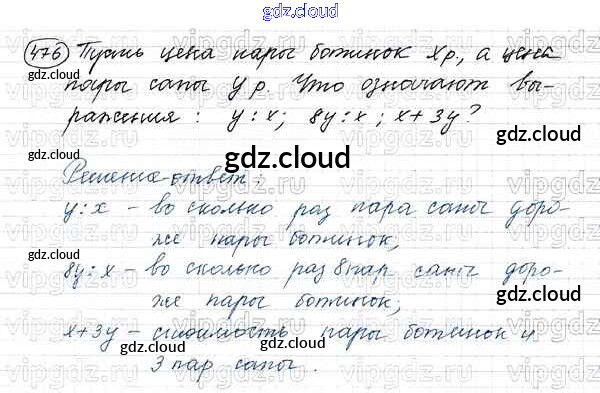 gdz.cloud
476 Пусть цена пары ботинок x р., а цена
gdz.cloud gdz.cloud
пары сапог y р. Что означают вы-
ражения: y : x; 8y : x; x + 3y?
gdz.cloud gdz.cloud
gdz.cloud
Решение-ответ:
y : x – во сколько раз пара сапог доро-
gdz.cloud gdz.cloud
же пары ботинок;
8y : x – во сколько раз 8 пар сапог доро-
же пары ботинок;
gdz.cloud
x + 3y – стоимость пары ботинок и
gdz.cloud gdz.cloud
3 пар сапог.